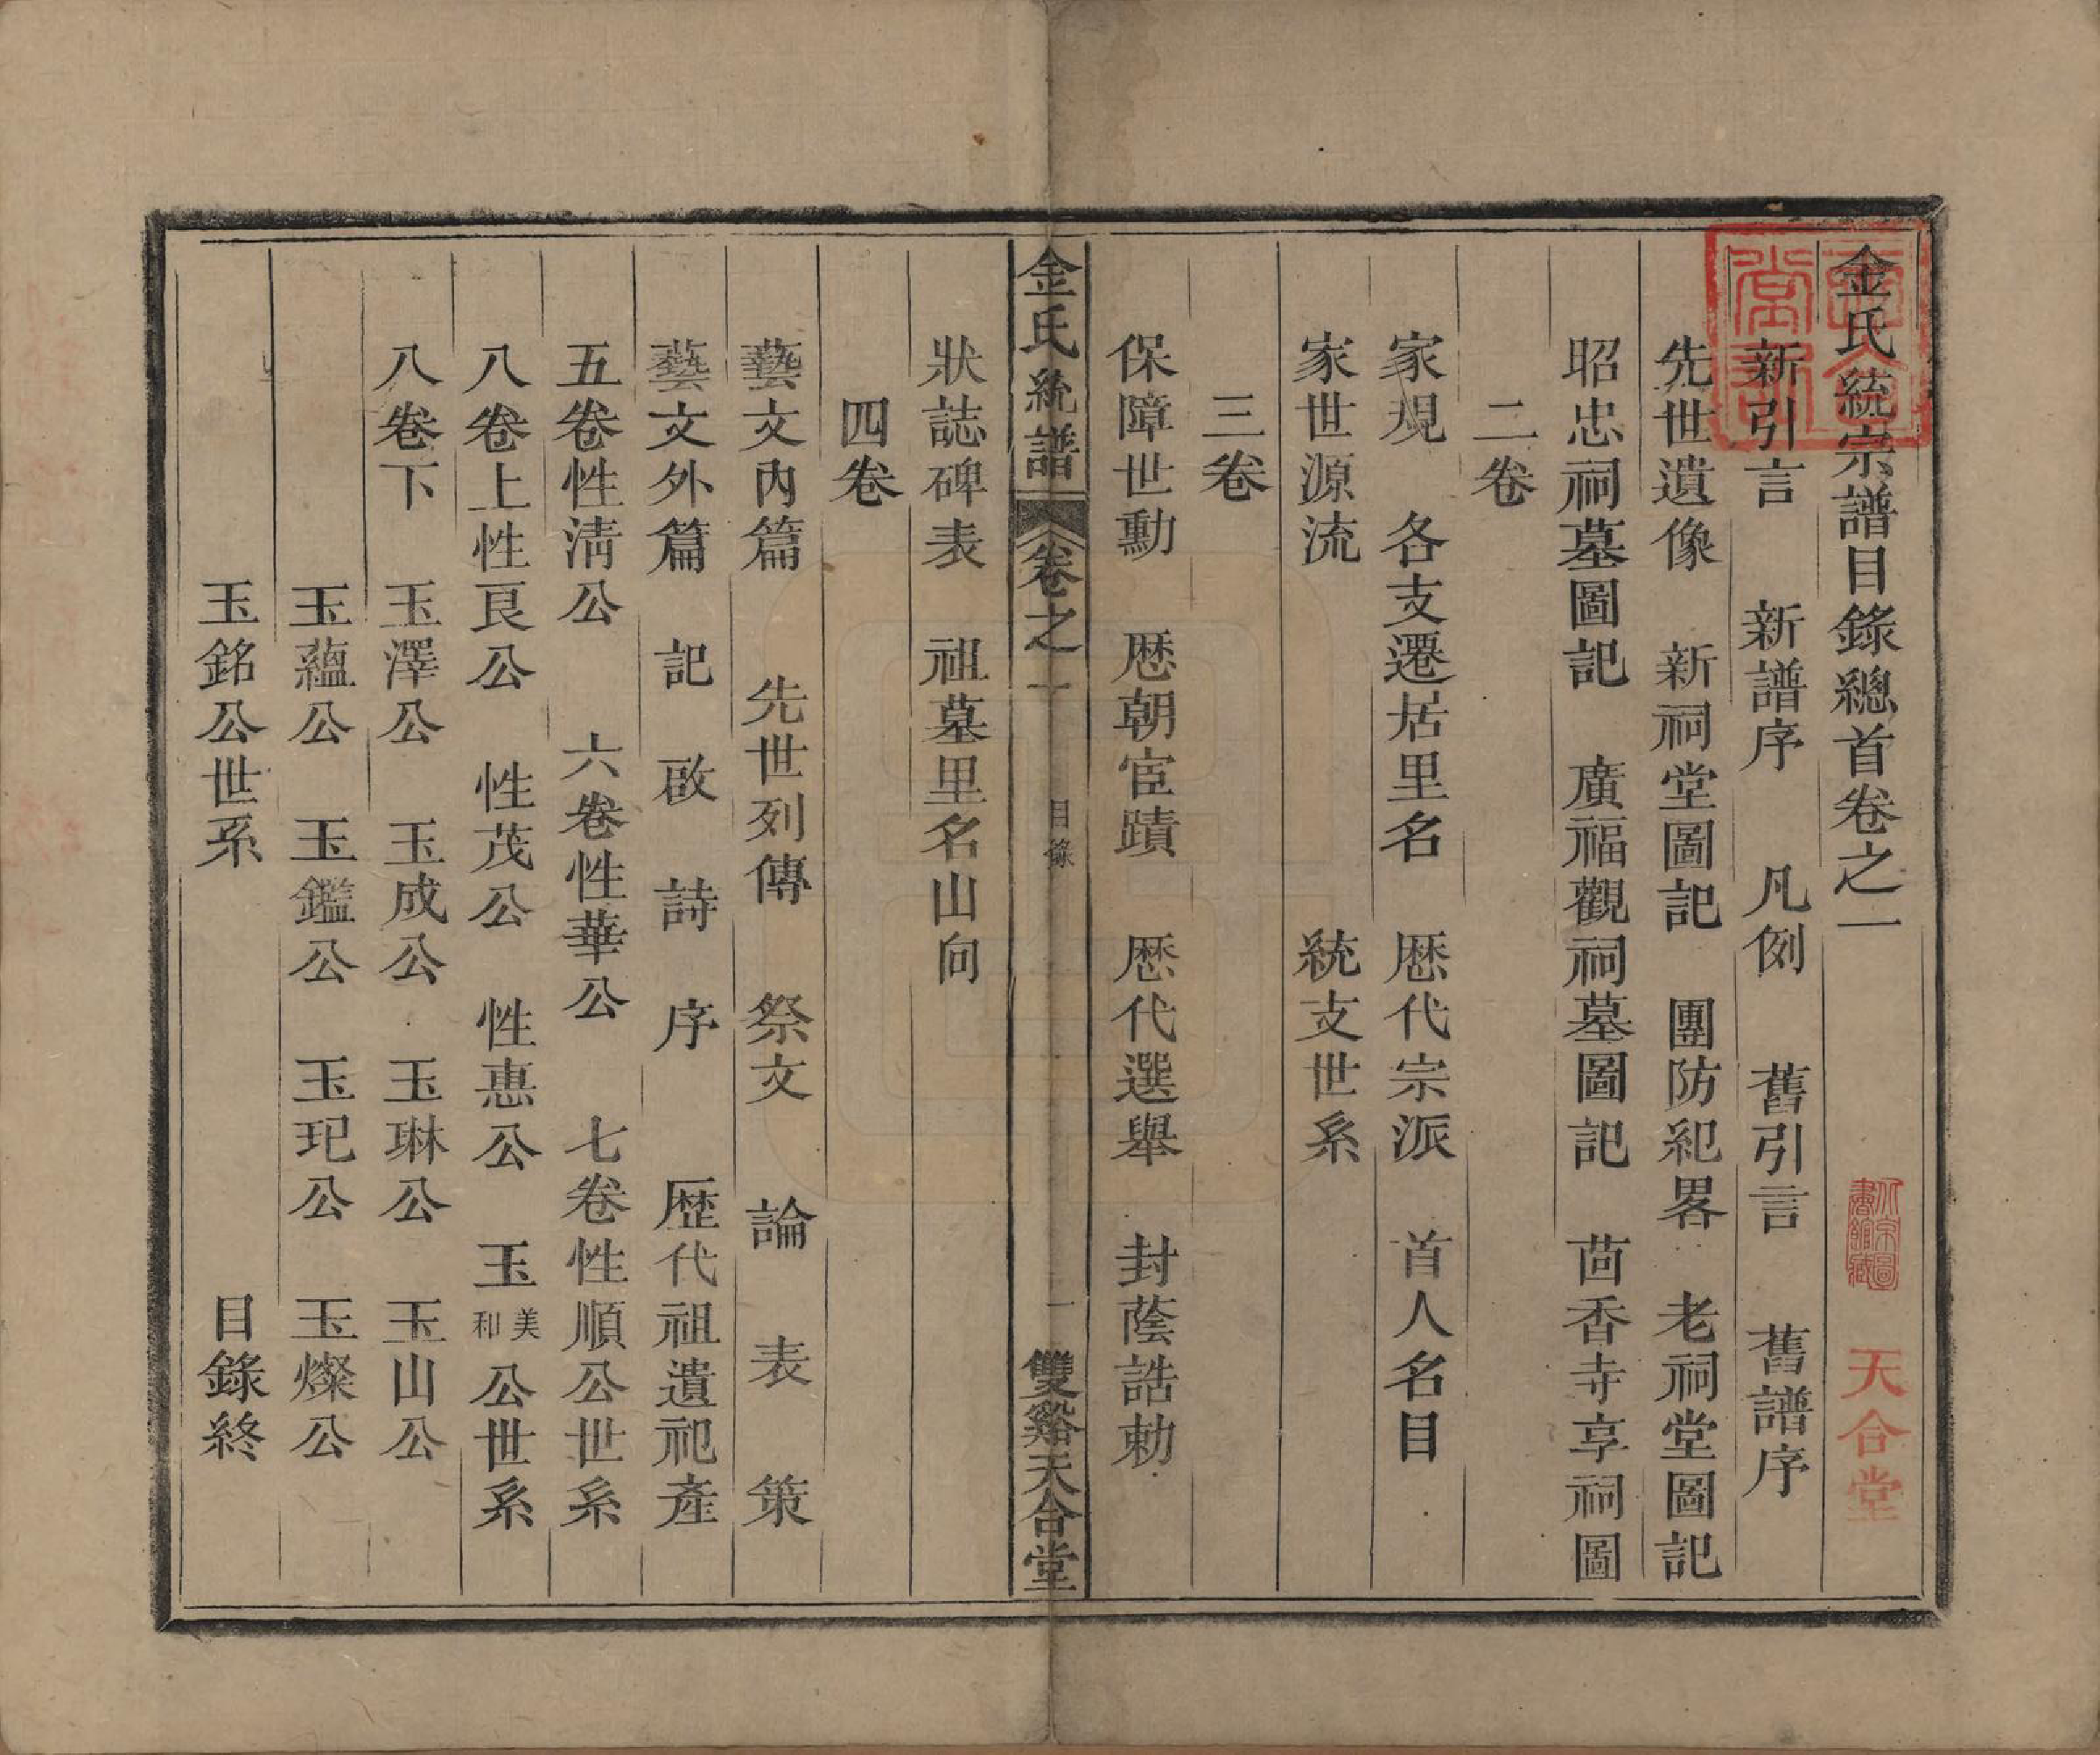 金氏統宗譜目錄總首卷之一
天合堂
新引言 新譜序 凡例 舊引言 舊譜序
先世遺像 新祠堂圖記 團防紀畧 老祠堂圖記
昭忠祠墓圖記 廣福觀祠墓圖記 茴香寺享祠圖
二卷
家規 各支遷居里名 歷代宗派 首人名目
家世源流 統支世系
三卷
保障世勳 歷朝宦蹟 歷代選舉 封蔭誥勅
金氏統譜 卷之一 目錄 一 雙谿天合堂
狀誌碑表 祖墓里名山向
四卷
藝文內篇 先世列傳 祭文 論 表 策
藝文外篇 記 啟 詩 序 歷代祖遺祀產
五卷性淸公 六卷性華公 七卷性順公世系
八卷上性艮公 性茂公 性惠公 玉美和公世系
八卷下 玉澤公 玉成公 玉琳公 玉山公
玉蘊公 玉鑑公 玉玘公 玉燦公
玉銘公世系 目錄終